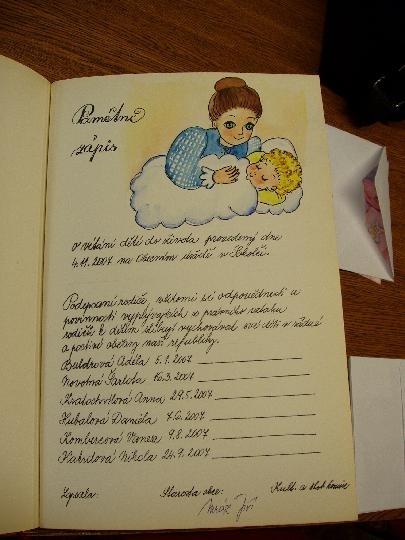 Pamětní
zápis
o vítání dětí do života provedený dne
4.11.2007 na Obecním úřadě v Sokolči.
Podepsaní rodiče, vědomi si odpovědnosti a
povinností vyplývajících z právního vztahu
rodičů k dětem slibují vychovávat své děti v řádné
a poctivé občany naší republiky.
Adéla 5.1.2007
Novotná 16.3.2007
Kratochvílová Anna 29.5.2007
Kubalová Daniela 7.6.2007
9.8.2007
Nikola 24.9.2007
Zapsala: Starosta obce: Kult. a